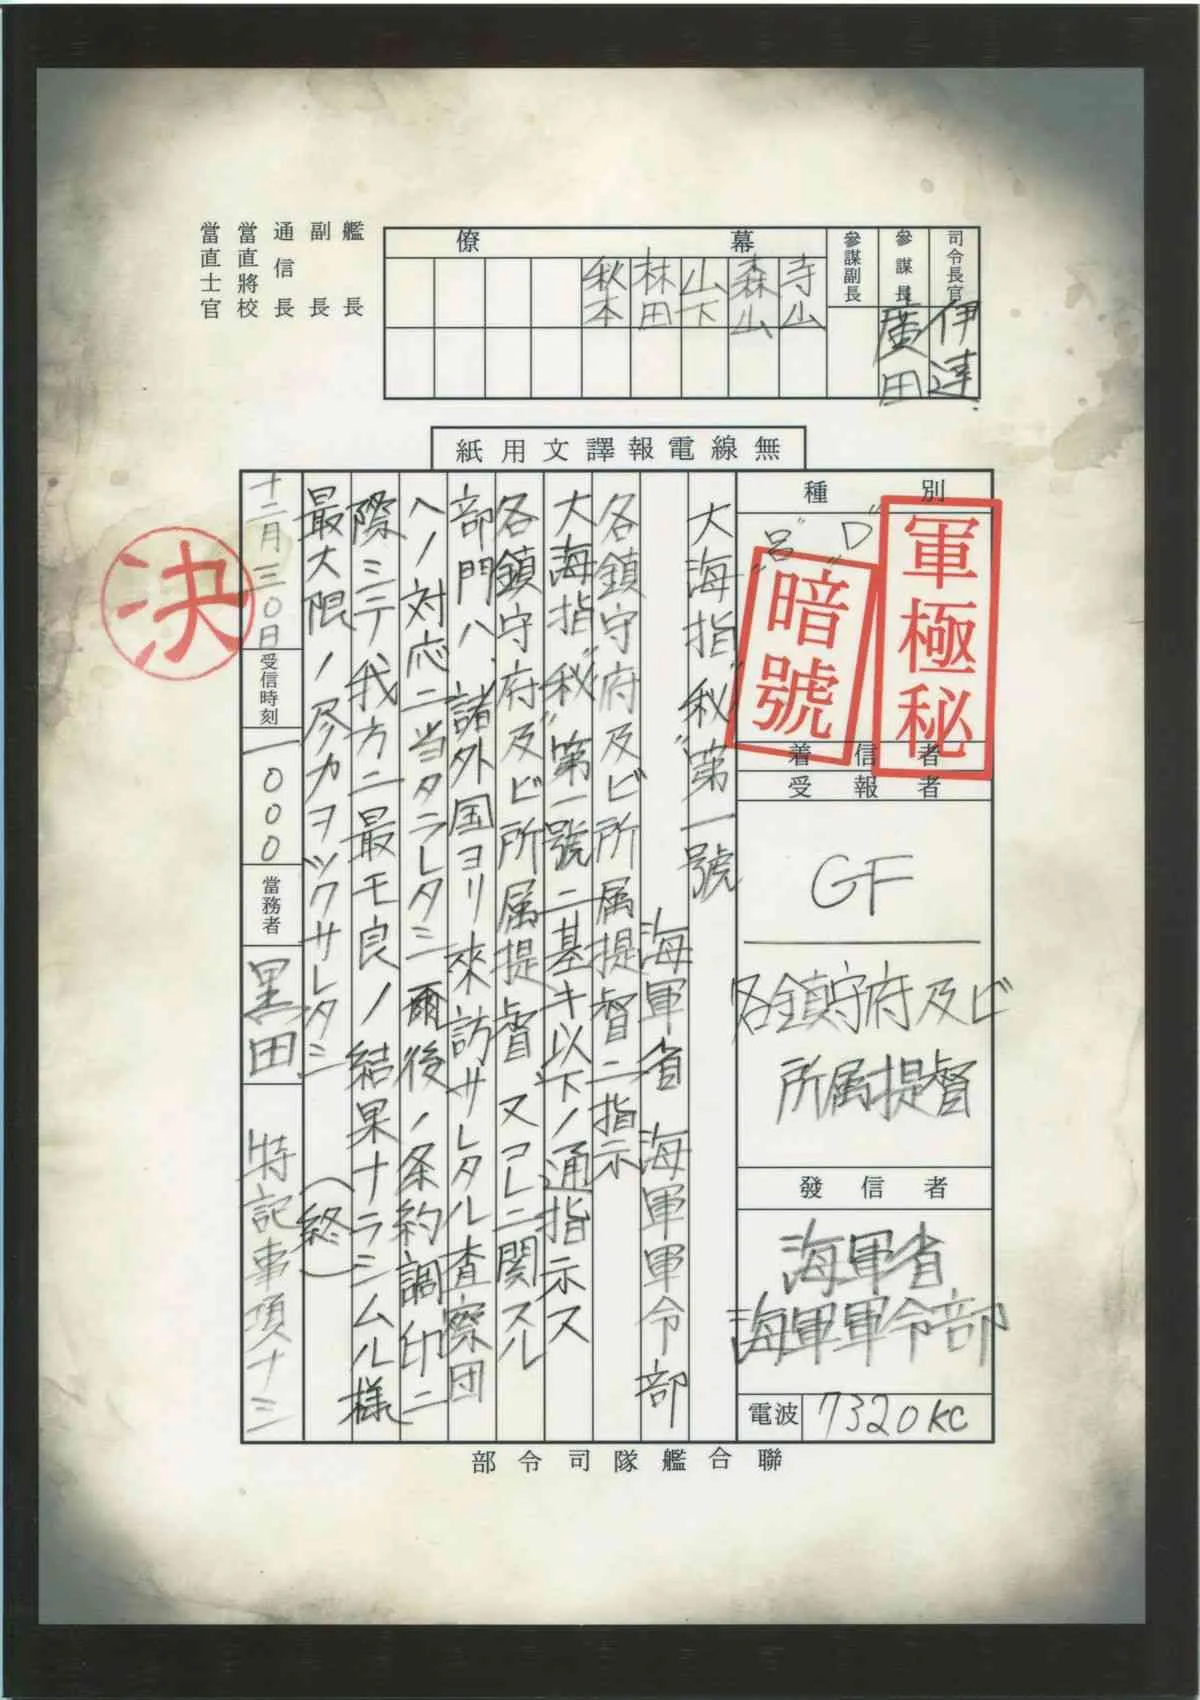 司令長官
伊達
參謀長
廣田
參謀副長
幕僚
寺山
森山
山下
林田
秋本
艦長
副長
通信長
當直將校
當直士官
無線電報譯文用紙
種別
"D"
"呂"
軍極秘
暗號
着信者
受報者
GF
各鎮守府及ビ
所属提督
發信者
海軍省
海軍軍令部
電波
7320KC
大海指"秘"第一號
海軍省 海軍軍令部
各鎮守府及ビ所属提督ニ指示
大海指"秘"第一號ニ基キ以下ノ通指示ス
各鎮守府及ビ所属提督 又アレニ関スル
部門ハ、諸外国ヨリ來訪サレタル査察団
ヘノ対応ニ当タラレタシ 爾後ノ条約調印ニ
際ミテ我方ニ最モ良ノ結果ナラシムル様
最大限ノ尽力ヲツクサレタシ
(終)
十二月三〇日
受信時刻
一〇〇〇
當務者
黒田
特記事項ナシ
決
聯合艦隊司令部